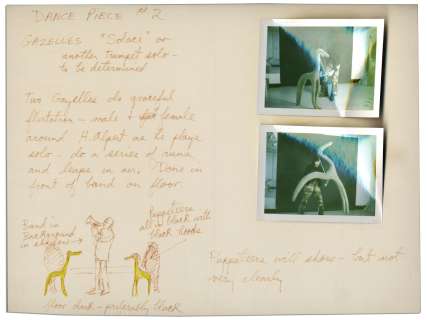 DANCE PIECE #2
GAZELLES "Solaci" or
another trumpet solo -
to be determined
Two Gazelles do graceful
flirtation - male & female
around H. Alpert as he plays
solo - do a series of runs
and leaps in air. Done in
front of band on floor.
Band in
Background
in shadow
Puppeteers
all in black with
black hoods
floor dark - preferably black
Puppeteers will show - but not
very clearly